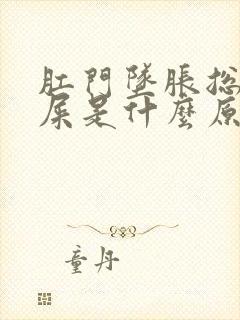 肛門墜脹總
屎是什麼原
童丹